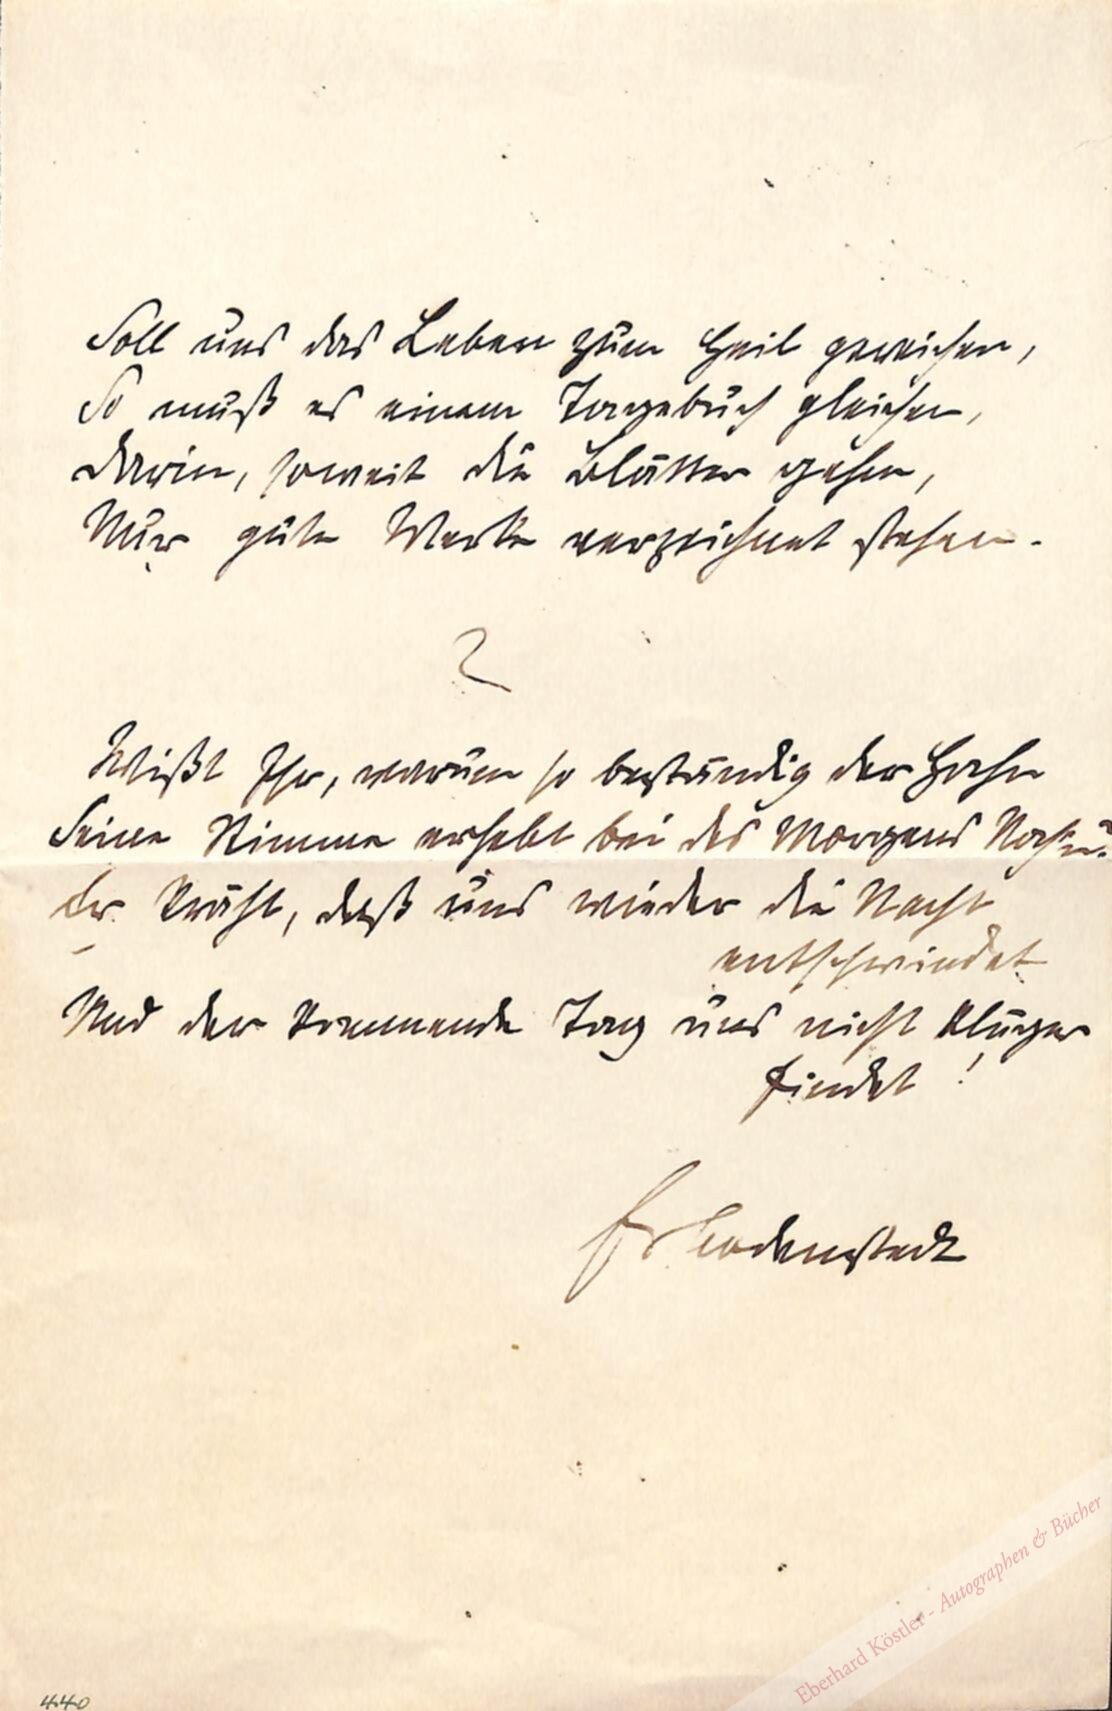 Soll uns das Leben zum Heil gereichen,
So muß es einem Tagebuch gleichen,
Darin, soweit die Blätter gehen,
Nur gute Werke verzeichnet stehen.
Wißt Ihr, warum so beständig der Hahn
Seine Stimme erhebt bei des Morgens Nahn?
Er kräht, daß uns wieder die Nacht
entschwindet
Und der kommende Tag uns nicht kluger
findet!
Fr Bodenstedt
Eberhard Köstler - Autographen & Bücher
440